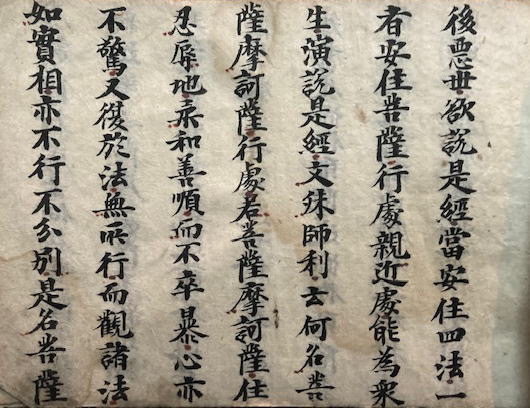 後悪世欲說是經當安住四法一
者安住菩薩行處親近處能為衆
生演說是經文殊師利云何名菩
薩摩訶薩行處若菩薩摩訶薩住
忍辱地柔和善順而不卒暴心亦
不驚又復於法無所行而觀諸法
如實相亦不行不分別是名菩薩